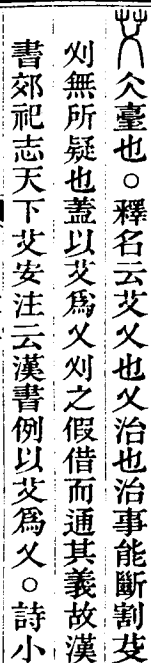 艾仌臺也。釋名云艾乂也乂治也治事能斷割芟
刈無所疑也蓋以艾爲乂刈之假借而通其義故漢
書郊祀志天下艾安注云漢書例以艾爲乂。詩小